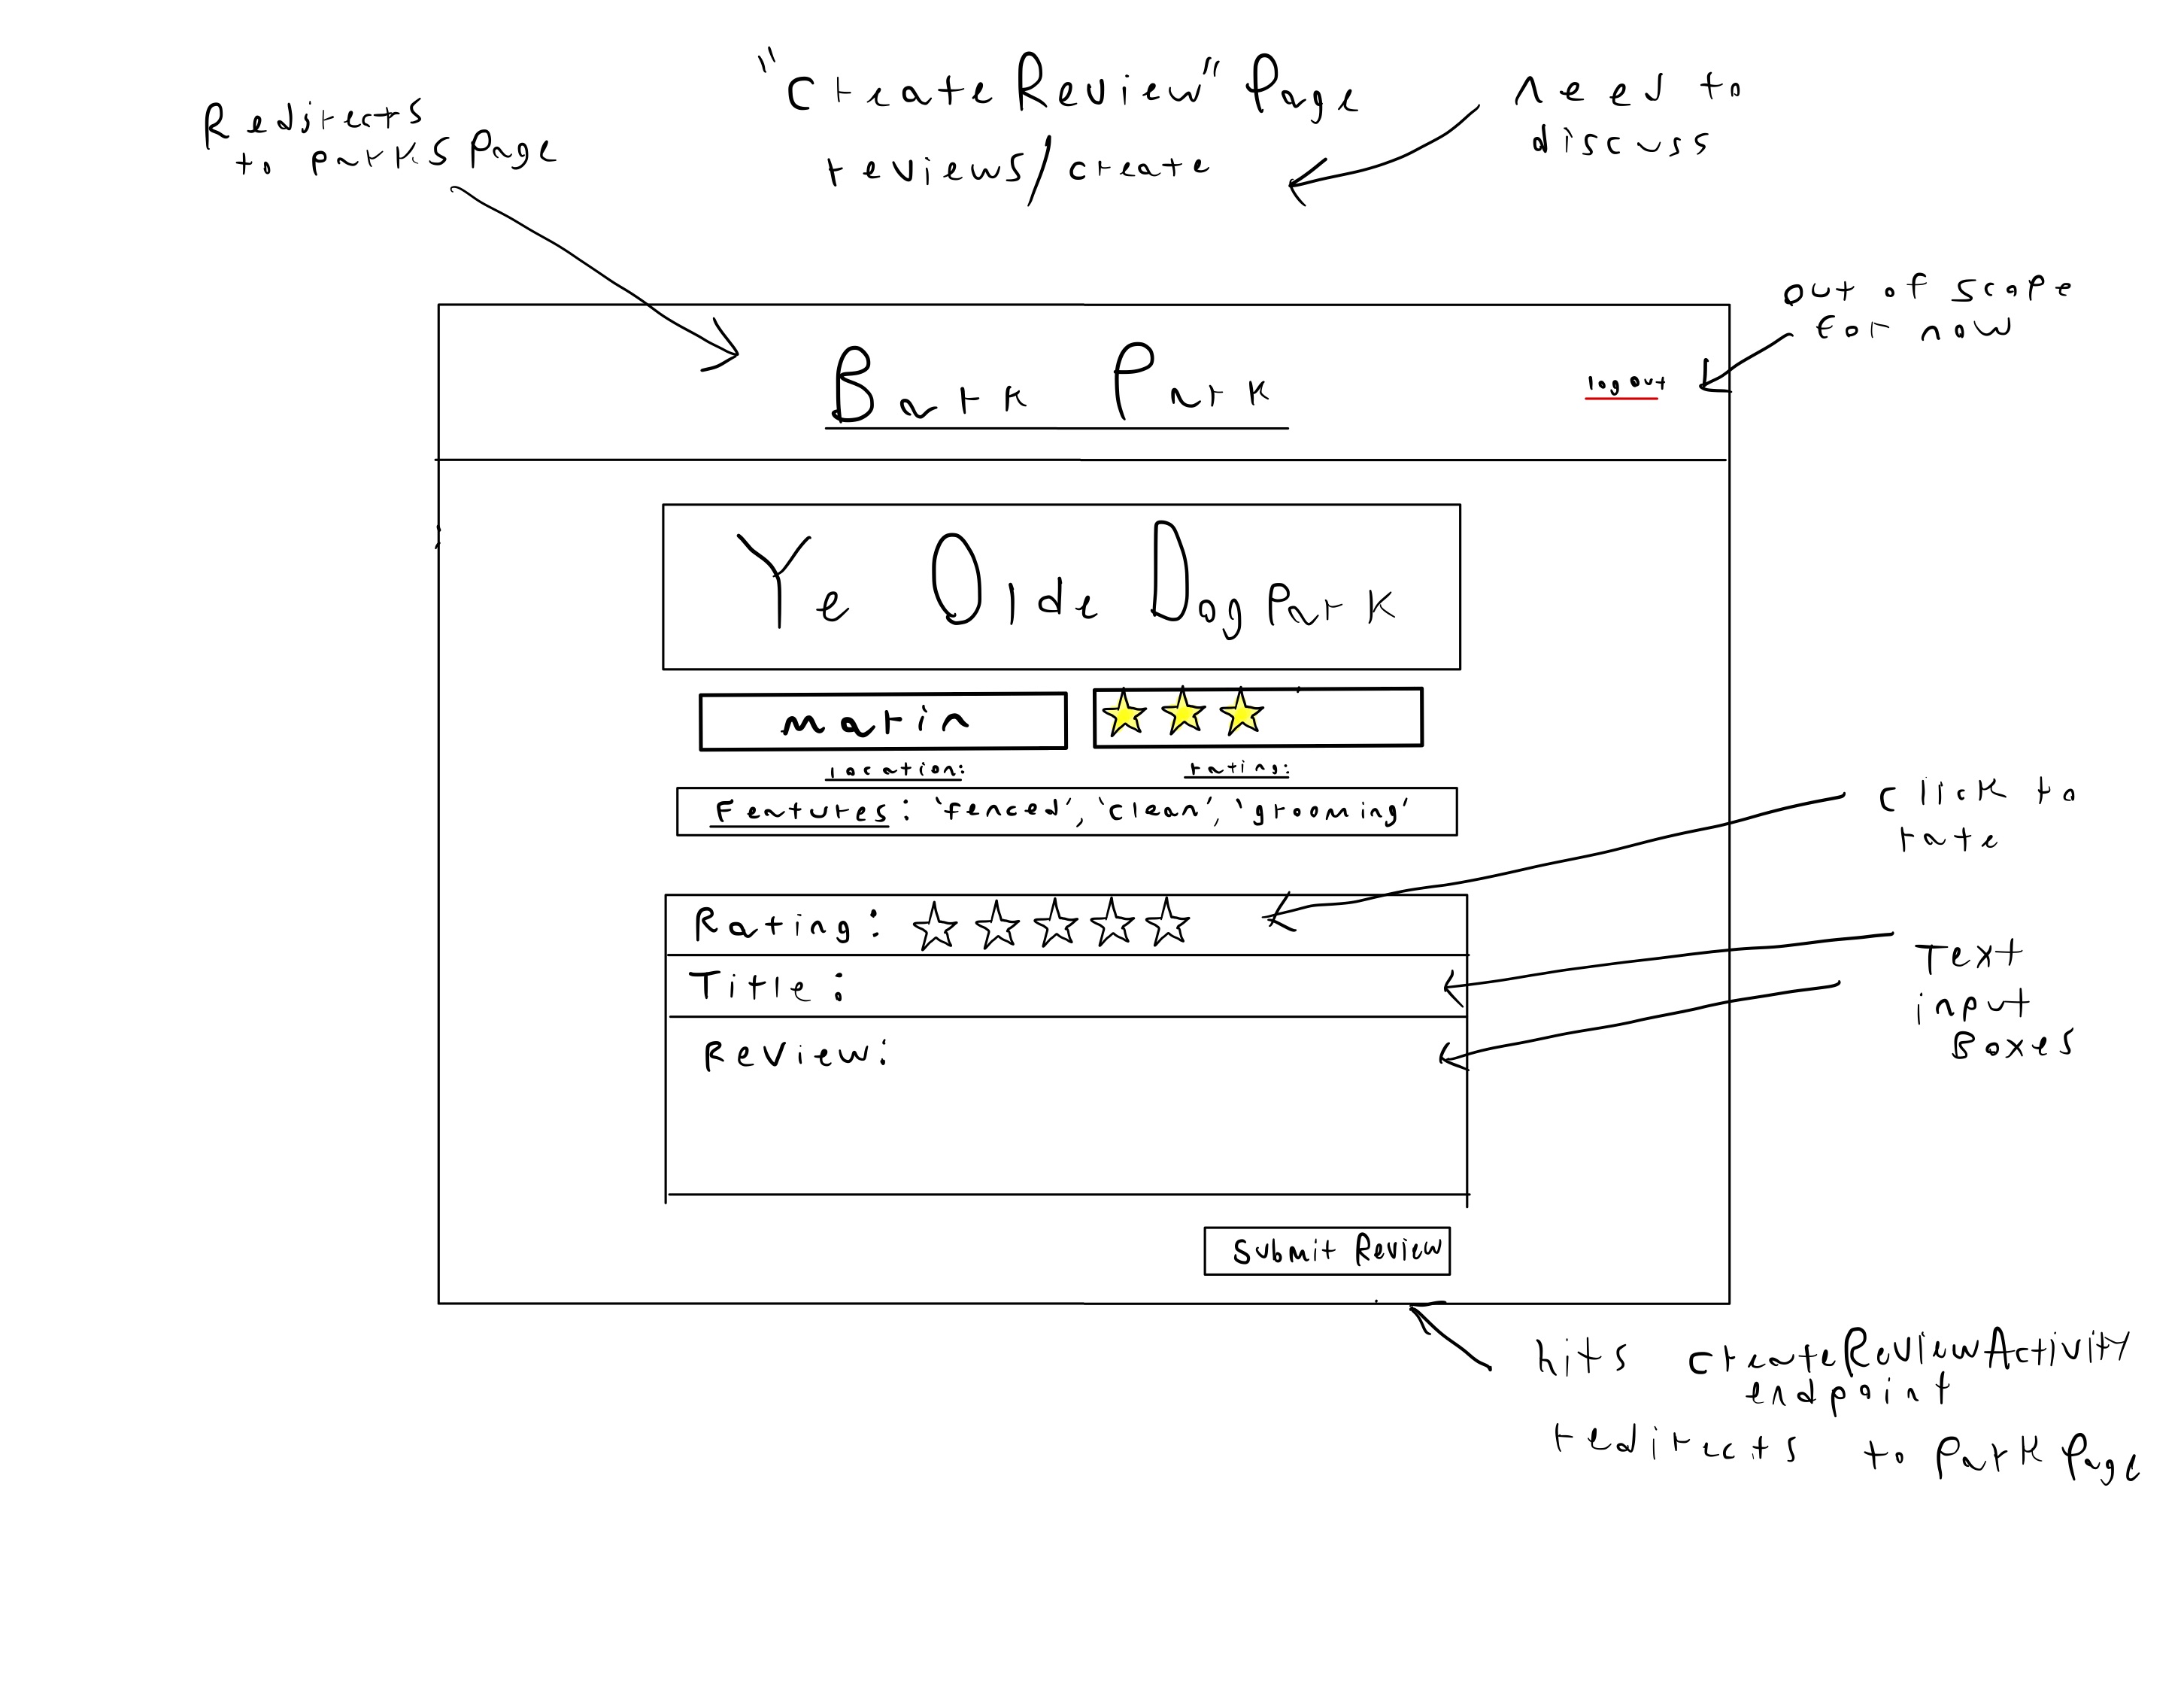 "createReview" Page
reviews/create
need to
discuss
Redirects
to parks page
out of scope
for now
Bark Park
logout
Ye Olde Dog Park
marin
location:
rating:
Features: 'fenced', 'clean', 'grooming'
click to
rate
Rating:
Title:
Review:
Text
input
Boxes
Submit Review
hits createReviewActivity
endpoint
redirects to Park Page